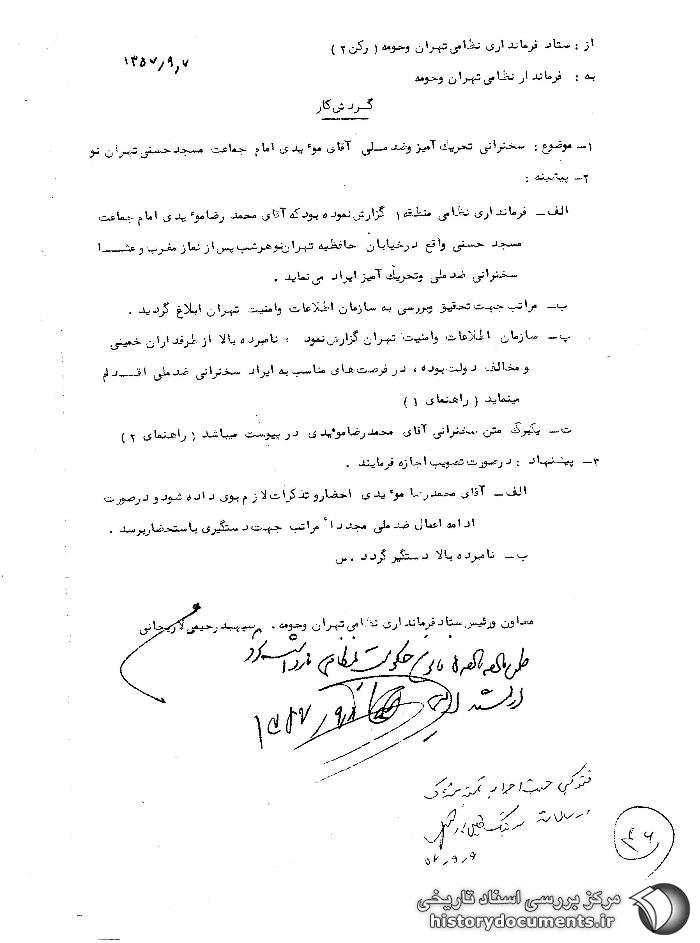 از : ستاد فرمانداری نظامی تهران وحومه ( رکن ۲ )
۱۳۵۷/۹/۷
به : فرماندار نظامی تهران وحومه
گردش کار
۱- موضوع : سخنرانی تحریک آمیز وضد ملی آقای موئیدی امام جماعت مسجد حسنی تهران نو
۲- پیشینه :
الف - فرمانداری نظامی منطقه ۱ گزارش نموده بود که آقای محمد رضا موئیدی امام جماعت
مسجد حسنی واقع درخیابان حافظیه تهران نو هرشب پس از نماز مغرب و عشا
سخنرانی ضد ملی وتحریک آمیز ایراد می نماید .
ب - مراتب جهت تحقیق وبررسی به سازمان اطلاعات وامنیت تهران ابلاغ گردید .
پ - سازمان اطلاعات وامنیت تهران گزارش نمود ، نامبرده بالا از طرفداران خمینی
و مخالف دولت بوده ، در فرصت های مناسب به ایراد سخنرانی ضد ملی اقدام
مینماید ( راهنمای ۱ )
ت - یکبرگ متن سخنرانی آقای محمدرضا موئیدی در پیوست میباشد ( راهنمای ۲ )
۳- پیشنهاد : درصورت تصویب اجازه فرمایند .
الف - آقای محمدرضا موئیدی احضار و تذکرات لازم بوی داده شود و درصورت
ادامه اعمال ضد ملی مجددا" مراتب جهت دستگیری باستحضار برسد .
ب - نامبرده بالا دستگیر گردد . س
معاون ورئیس ستاد فرمانداری نظامی تهران وحومه . سپهبد رحیمی لاریجانی
حکومت نظامی
۱۳۵۷/۹
۵۷/۹/۹
۴۶
مرکز بررسی اسناد تاریخی
historydocuments.ir